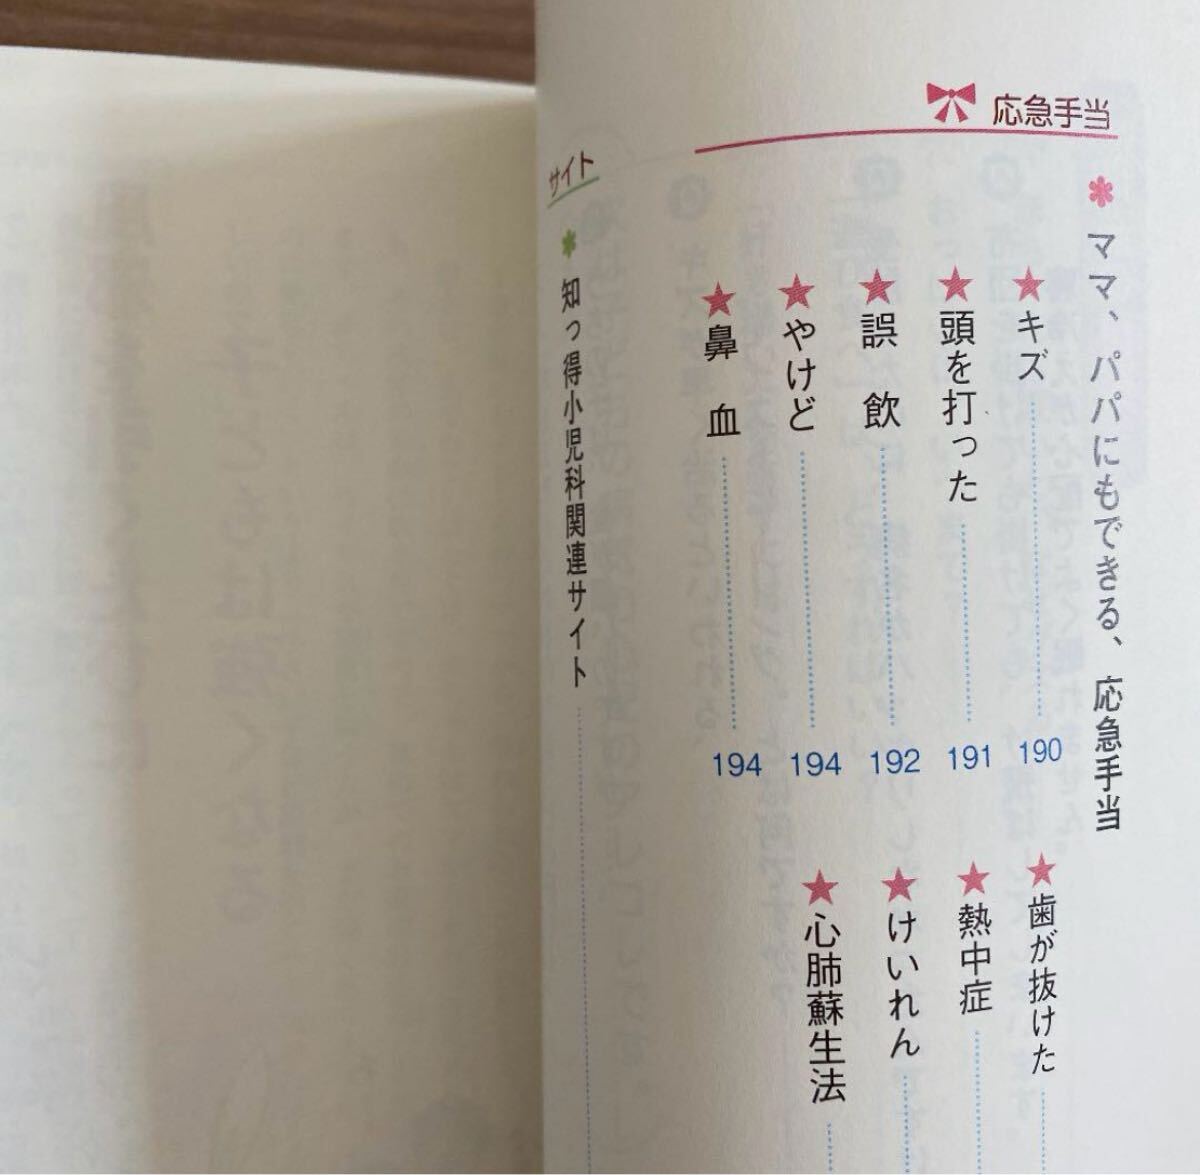 応急手当
ママ、パパにもできる、応急手当
★キズ 190
★頭を打った 191
★誤飲 192
★やけど 194
★鼻血 194
★歯が抜けた
★熱中症
★けいれん
★心肺蘇生法
サイト
知っ得小児科関連サイト